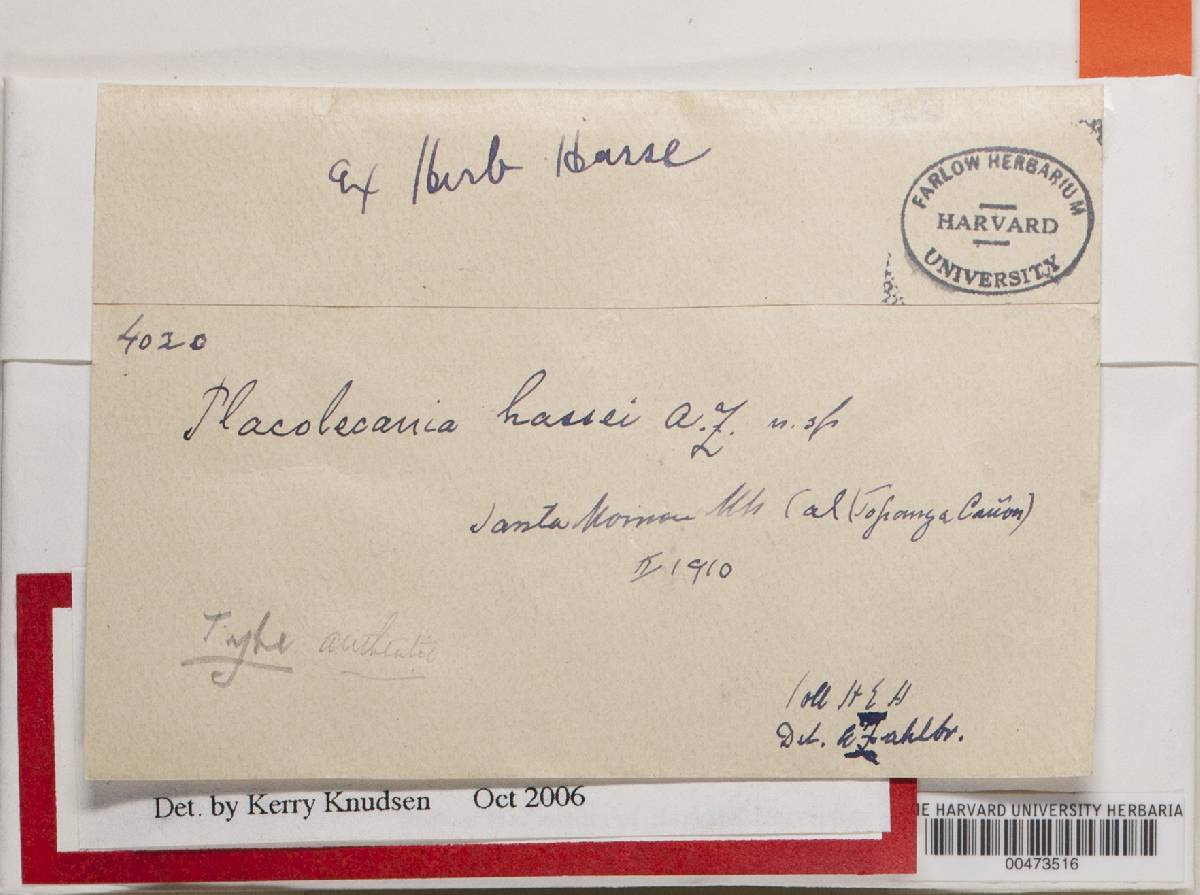 Ex Herb Hasse
FARLOW HERBARIUM
HARVARD
UNIVERSITY
4020
Placolecania hassei A.Z. n. sp
Santa Monica Mts (Cal (Topanga Cañon)
II 1910
Type authentic
Coll H E H
Det. A Zahlbr.
Det. by Kerry Knudsen Oct 2006
HE HARVARD UNIVERSITY HERBARIA
00473516